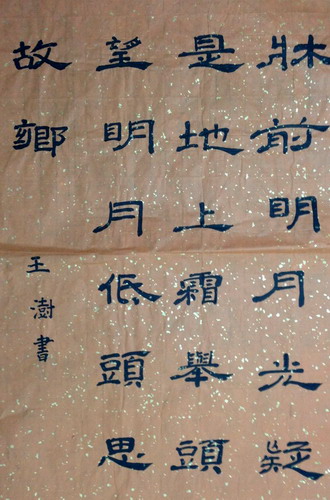 牀前明月光疑
是地上霜舉頭
望明月低頭思
故鄉
王澍書